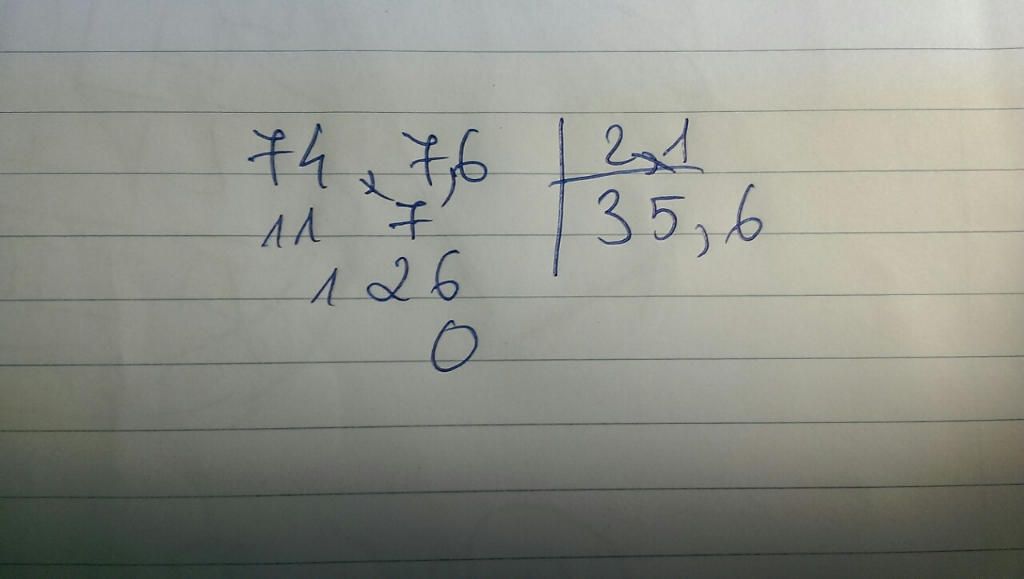 74,7,6 | 2,1
11 7 | 35,6
126
0